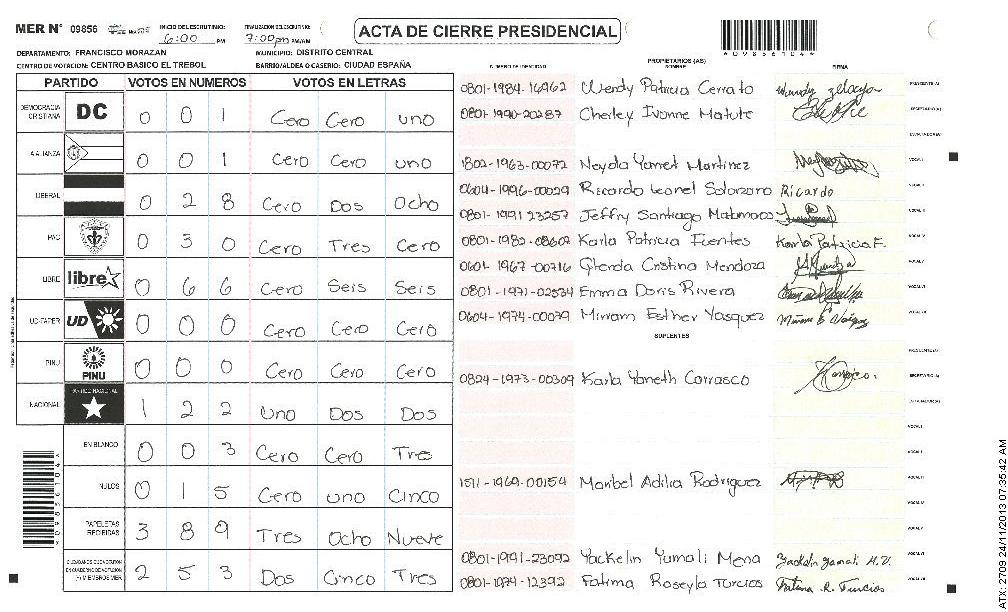 MER N° 09856
INICIO DEL ESCRUTINIO: 6:00 PM
FINALIZACION DEL ESCRUTINIO: 7:00 pm PM/AM
ACTA DE CIERRE PRESIDENCIAL
*09856104*
DEPARTAMENTO: FRANCISCO MORAZAN
MUNICIPIO: DISTRITO CENTRAL
CENTRO DE VOTACION: CENTRO BASICO EL TREBOL
BARRIO/ALDEA O CASERIO: CIUDAD ESPAÑA
PARTIDO VOTOS EN NUMEROS VOTOS EN LETRAS
DEMOCRACIA CRISTIANA DC 0 0 1 Cero Cero uno
LA ALIANZA 0 0 1 Cero Cero uno
LIBERAL 0 2 8 Cero Dos Ocho
PAC 0 3 0 Cero Tres Cero
LIBRE libre 0 6 6 Cero Seis Seis
UD-FAPER UD 0 0 0 Cero Cero Cero
PINU PINU 0 0 0 Cero Cero Cero
NACIONAL PARTIDO NACIONAL 1 2 2 Uno Dos Dos
EN BLANCO 0 0 3 Cero Cero Tres
NULOS 0 1 5 Cero uno Cinco
PAPELETAS RECIBIDAS 3 8 9 Tres Ocho Nueve
CIUDADANOS QUE VOTARON EN CUADERNO DE VOTACION (+) MIEMBROS MER 2 5 3 Dos Cinco Tres
*09856104*
NUMERO DE IDENTIDAD PROPIETARIOS (AS) NOMBRE FIRMA
0801-1984-16962 Wendy Patricia Cerrato PRESIDENTE (A)
0801-1990-20287 Cherley Ivonne Matute SECRETARIO (A)
ESCRUTADOR (A)
1802-1963-00072 Neyda Yamet Martinez VOCAL I
0604-1996-00029 Ricardo Leonel Solorzano Ricardo VOCAL II
0801-1991 23257 Jeffry Santiago Matamoros VOCAL III
0801-1982-08602 Karla Patricia Fuentes Karla Patricia F. VOCAL IV
0601-1967-00716 Glenda Cristina Mendoza VOCAL V
0801-1971-02534 Emma Doris Rivera VOCAL VI
0604-1974-00079 Miriam Esther Vasquez VOCAL VII
SUPLENTES
PRESIDENTE (A)
0824-1973-00309 Karla Yaneth Carrasco SECRETARIO (A)
ESCRUTADOR (A)
VOCAL I
VOCAL II
1511-1969-00154 Maribel Adilia Rodriguez VOCAL III
VOCAL IV
VOCAL V
0801-1991-23092 Yackelin Yamali Mena VOCAL VI
0801-1974-12392 Fatima Roseyla Turcios Fatima R. Turcios VOCAL VII
ATX-2709 24/11/2013 07:35:42 AM